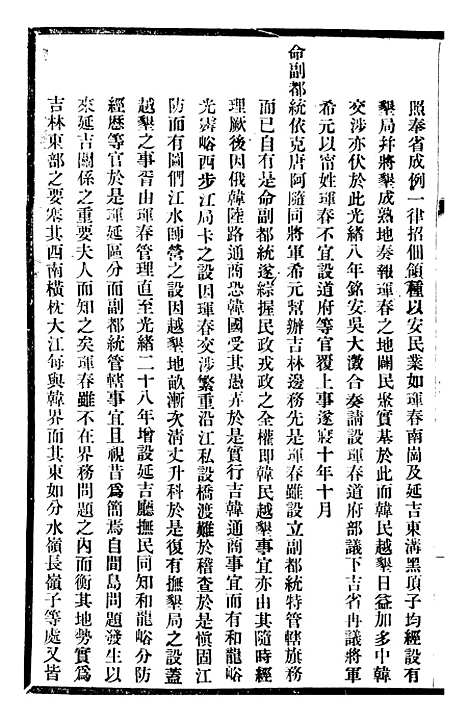 照奉省成例一律招佃領種以安民業如琿春南崗及延吉東溝黑頂子均經設有
墾局幷將墾成熟地奏報琿春之地闢民聚實基於此而韓民越墾日益加多中韓
交涉亦伏於此光緒八年銘安吳大澂合奏請設琿春道府部議下吉省再議將軍
希元以甯姓琿春不宜設道府等官覆上事遂寢十年十月
命副都統依克唐阿隨同將軍希元幫辦吉林邊務先是琿春雖設立副都統特管轄旗務
而已自有是命副都統遂綜握民政戎政之全權卽韓民越墾事宜亦由其隨時經
理厥後因俄韓陸路通商恐韓國受其愚弄於是實行吉韓通商事宜而有和龍峪
光霽峪西步江局卡之設因琿春交涉繁重沿江私設橋渡難於稽查於是愼固江
防而有圖們江水師營之設因越墾地畝漸次清丈升科於是復有撫墾局之設蓋
越墾之事胥由琿春管理直至光緒二十八年增設延吉廳撫民同知和龍峪分防
經歷等官於是琿延區分而副都統管轄事宜且視昔爲簡焉自間島問題發生以
來延吉關係之重要夫人而知之矣琿春雖不在界務問題之內而衡其地勢實爲
吉林東部之要塞其西南橫枕大江每與韓界而其東如分水嶺長嶺子等處又皆